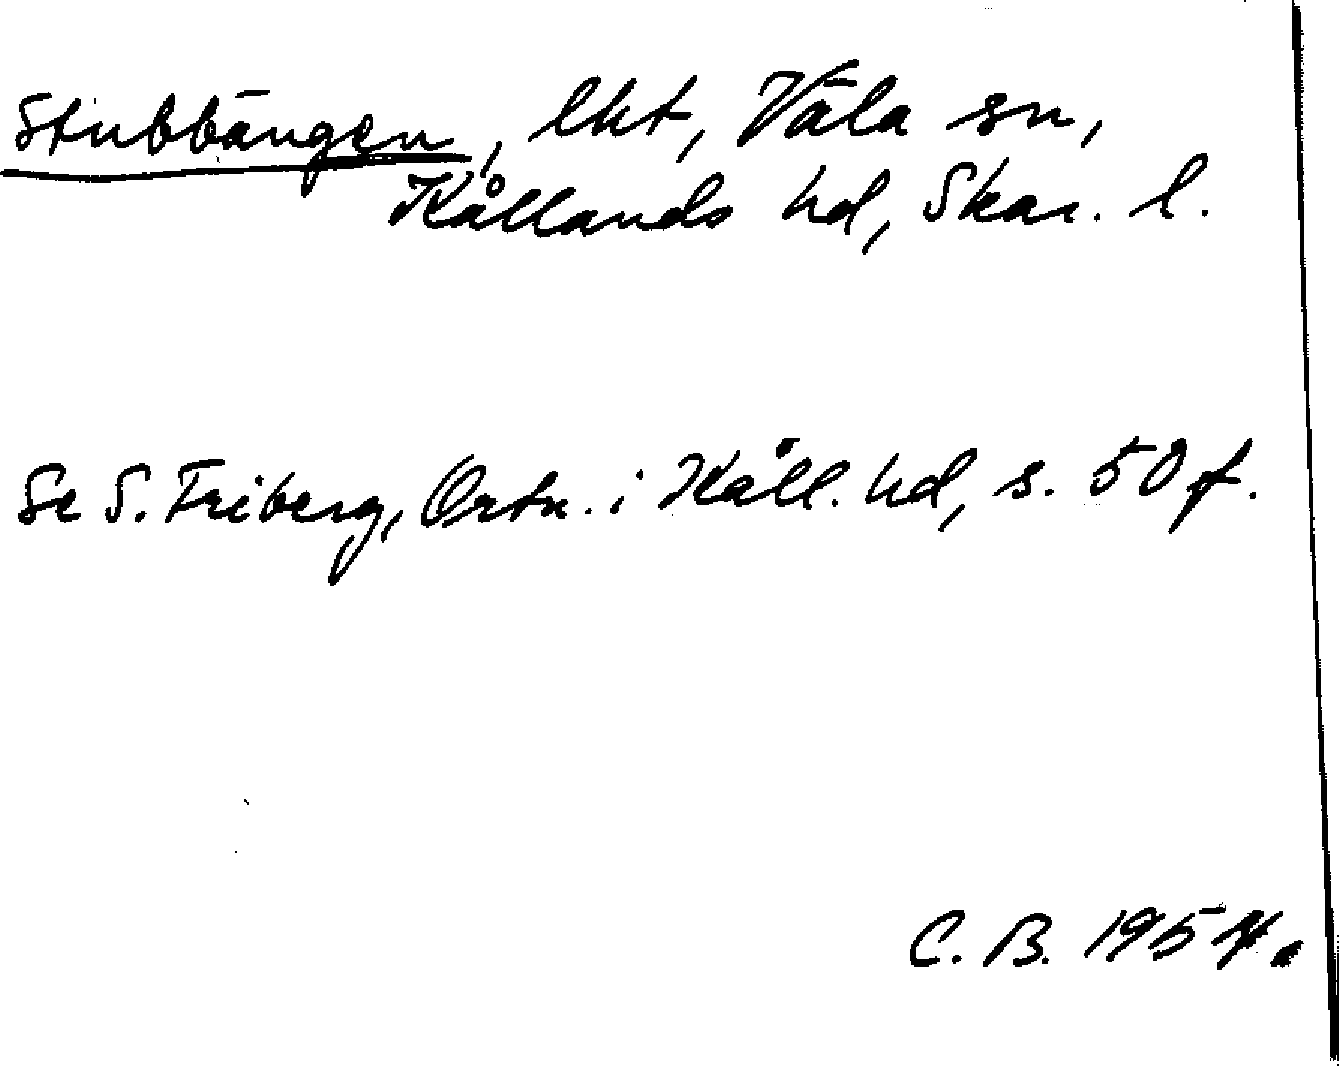 Stubbängen, lht, Väla sn,
Kållands hd, Skar. l.
Se S. Friberg, Ortn. i Kåll. hd, s. 50 f.
C. B. 1954.